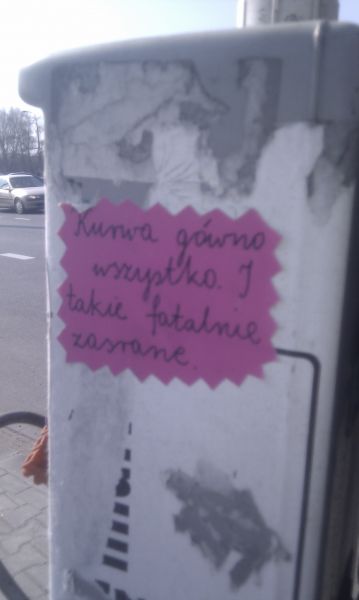 Kurwa gówno
wszystko. I
takie fatalnie
zasrane.